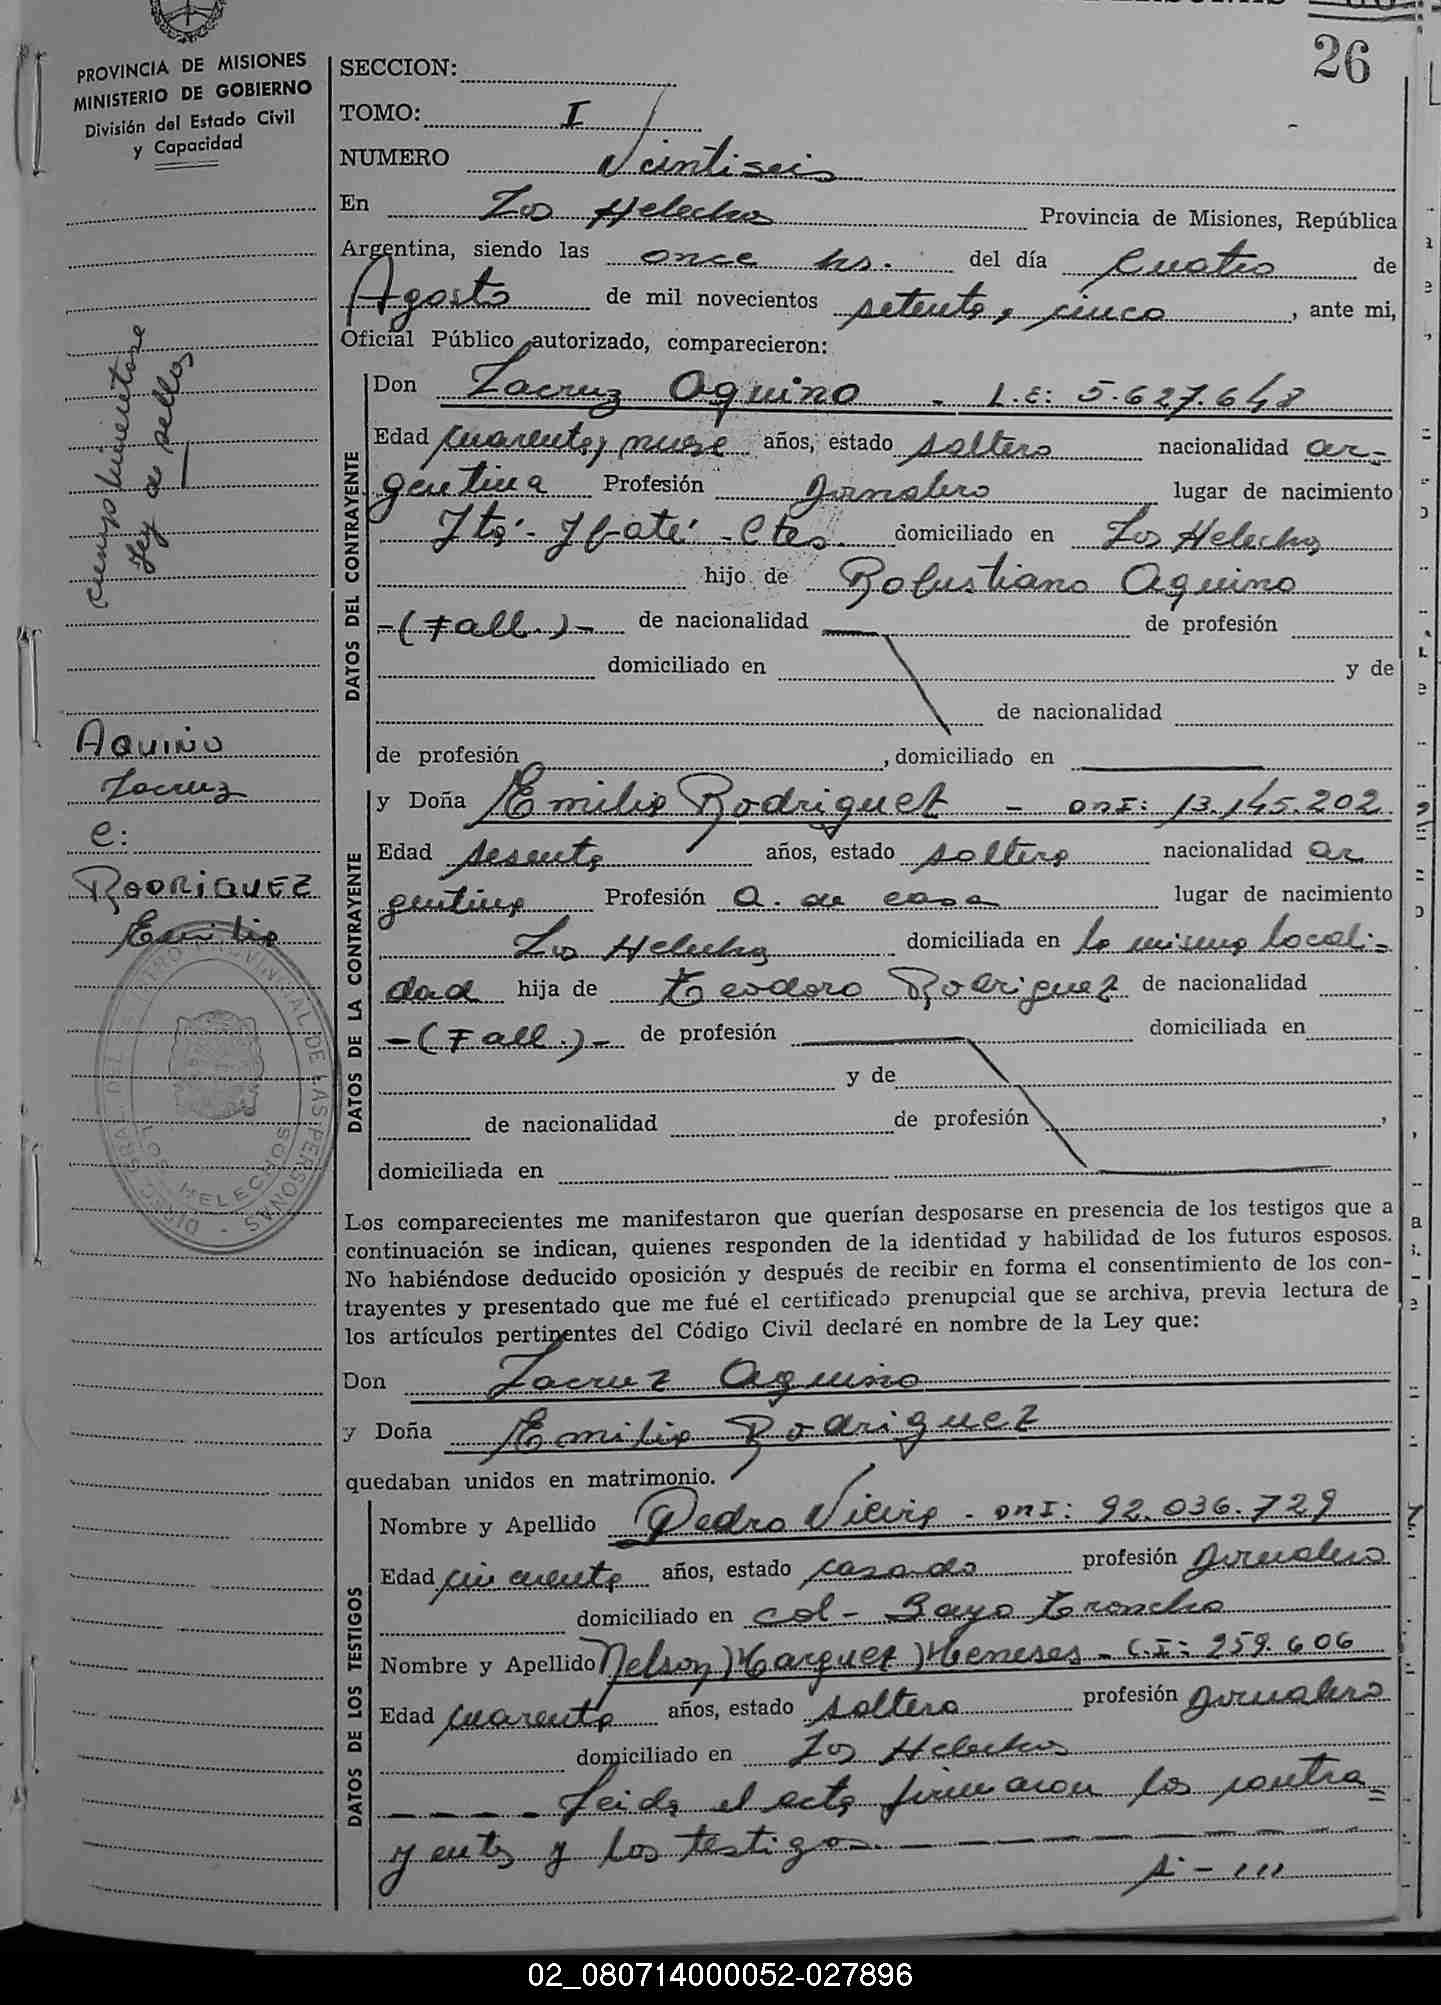 26
PROVINCIA DE MISIONES
MINISTERIO DE GOBIERNO
División del Estado Civil
y Capacidad
SECCION:
TOMO: I
NUMERO Veintiseis
En Los Helechos Provincia de Misiones, República
Argentina, siendo las once hs. del día cuatro de
Agosto de mil novecientos setenta y cinco, ante mi,
Oficial Público autorizado, comparecieron:
cumplimientose
ley de sellos
DATOS DEL CONTRAYENTE
Don Lacruz Aquino - L.E: 5.627.648
Edad cuarenta y nueve años, estado soltero nacionalidad ar-
gentina Profesión Jornalero lugar de nacimiento
Itá-Ibaté-Ctes. domiciliado en Los Helechos
hijo de Robustiano Aquino
-(Fall.)- de nacionalidad de profesión
domiciliado en y de
de nacionalidad
de profesión , domiciliado en
AQUINO
Lacruz
e:
RODRIGUEZ
Emilia
DATOS DE LA CONTRAYENTE
y Doña Emilia Rodriguez - DNI: 13.145.202
Edad sesenta años, estado soltera nacionalidad ar
gentina Profesión a. de casa lugar de nacimiento
Los Helechos domiciliada en la misma locali-
dad hija de Teodoro Rodriguez de nacionalidad
-(Fall.)- de profesión domiciliada en
y de
de nacionalidad de profesión ,
domiciliada en
DIREC. GRAL. DEL REGISTRO PROVINCIAL DE LAS PERSONAS -
LOS HELECHOS
Los comparecientes me manifestaron que querían desposarse en presencia de los testigos que a
continuación se indican, quienes responden de la identidad y habilidad de los futuros esposos.
No habiéndose deducido oposición y después de recibir en forma el consentimiento de los con-
trayentes y presentado que me fué el certificado prenupcial que se archiva, previa lectura de
los artículos pertinentes del Código Civil declaré en nombre de la Ley que:
Don Lacruz Aquino
y Doña Emilia Rodriguez
quedaban unidos en matrimonio.
DATOS DE LOS TESTIGOS
Nombre y Apellido Pedro Vieira - DNI: 92.036.729
Edad cincuenta años, estado casado profesión Jornalero
domiciliado en Col- Bayo Troncho
Nombre y Apellido Nelson Marquez Meneses - C.I: 259.606
Edad cuarenta años, estado soltero profesión Jornalero
domiciliado en Los Helechos
- - - - Leida el acta firmaron los contra=
yentes y los testigos. - - - - - - -
02_080714000052-027896